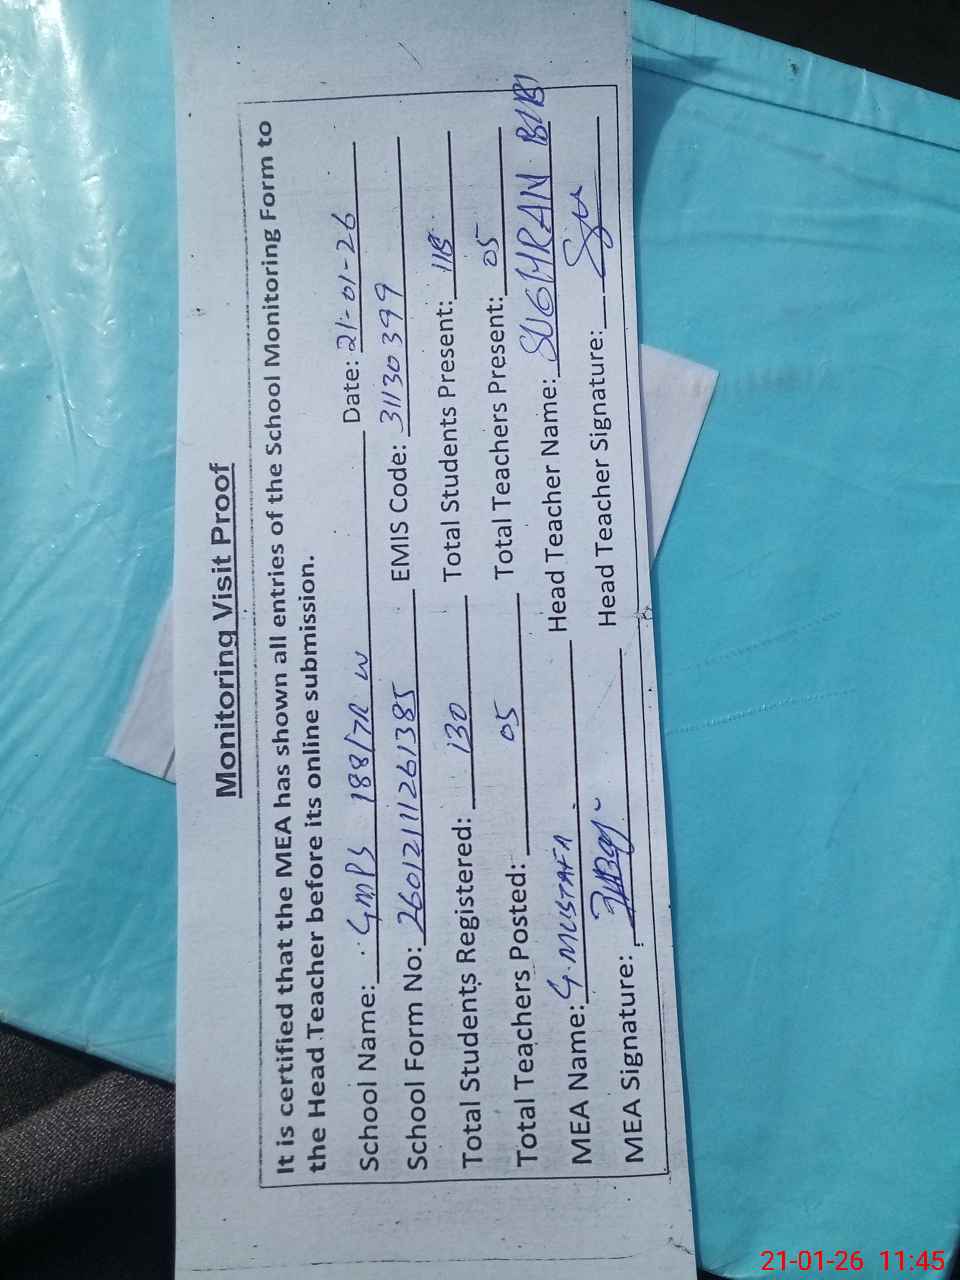 Monitoring Visit Proof
It is certified that the MEA has shown all entries of the School Monitoring Form to
the Head Teacher before its online submission.
School Name: GMPS 188/7R W Date: 21-01-26
School Form No: 26012111261385 EMIS Code: 31130399
Total Students Registered: 130 Total Students Present: 118
Total Teachers Posted: 05 Total Teachers Present: 05
MEA Name: G. MUSTAFA Head Teacher Name: SUGHRAN BIBI
MEA Signature: Head Teacher Signature:
21-01-26 11:45